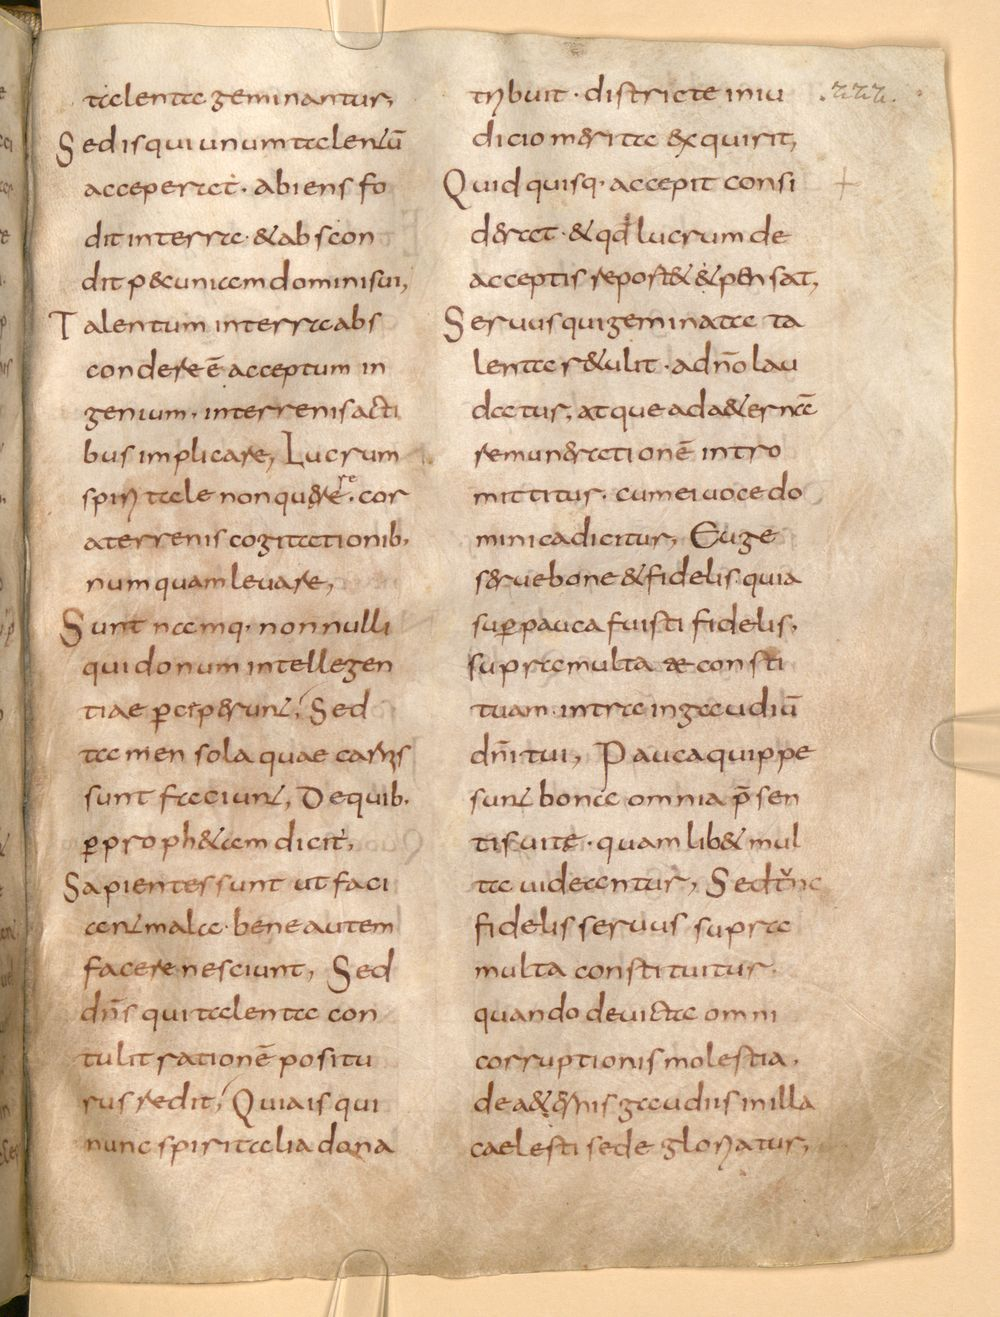 talenta geminantur,
Sed is qui unum talentū
acceperat· abiens fo
dit in terra· & abscon
dit p&cuniam domini sui,
Talentum in terra abs
condere ē acceptum in
genium· in terrenis acti
bus implicare, Lucrum
spiritale non querere· cor
a terrenis cogitationib·
numquam levare,
Sunt namq· non nulli
qui donum intellegen
tiae ꝑceperunt, Sed
tamen sola quae carnis
sunt faciunt, De quib·
ꝑ proph&am dicit,
Sapientes sunt ut faci
ant mala· bene autem
facere nesciunt, Sed
dn̄s qui talenta con
tulit rationē positu
rus redit, Quia is qui
nunc spiritalia dona
tribuit· districte in iu
dicio merita exquirit,
Quid quisq· accepit consi
deret· & qd lucrum de
acceptis report& & pensat,
Servus qui geminata ta
lenta r&ulit· a dn̄o lau
datur, atque ad a&ernā
remunerationē intro
mittitur· cum ei voce do
minica dicitur, Euge
serve bone & fidelis· quia
suꝑ pauca fuisti fidelis·
supra multa te consti
tuam· intra in gaudiū
dn̄i tui, Pauca quippe
sunt bona omnia p̄sen
tis vite· quam lib& mul
ta videantur, Sed tunc
fidelis servus supra
multa constituitur·
quando devicta omni
corruptionis molestia·
de a&ernis gaudiis in illa
caelesti sede gloriatur,
·222·
+